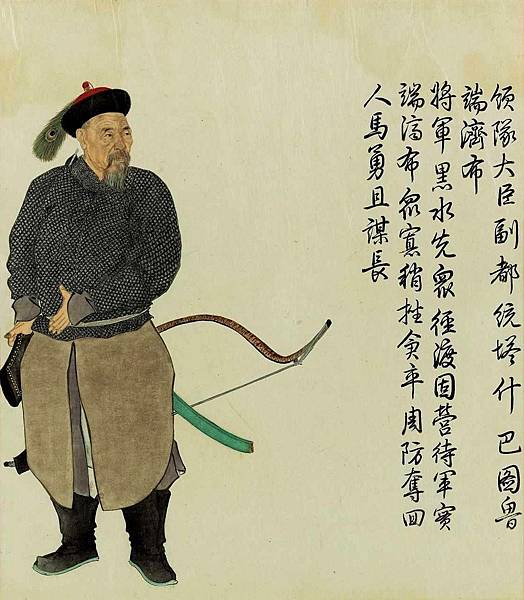 領隊大臣副都統塔什巴圖魯
端濟布
將軍黑水先眾徑渡固營待軍實
端濟布眾寡稍挫倉卒周防奪回
人馬勇且謀長